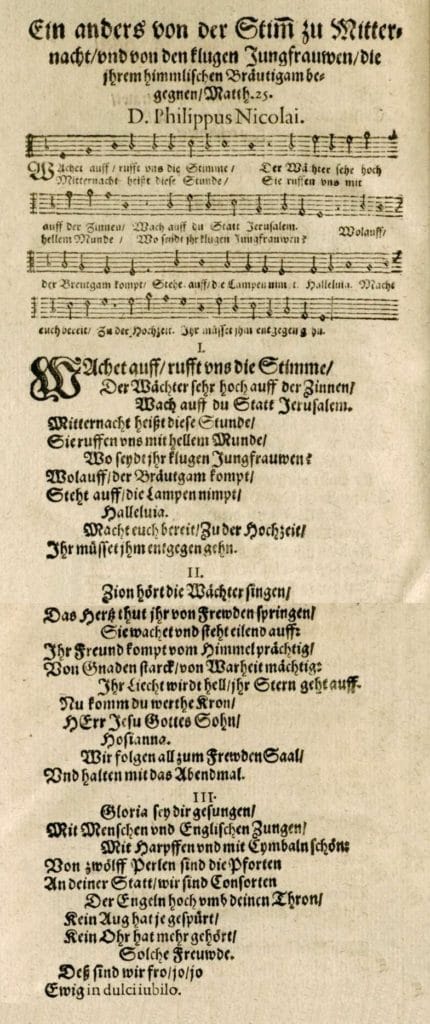 Ein anders von der Stim̅ zu Mitter-
nacht/vnd von den klugen Jungfrauwen/die
jhrem himmlischen Bräutigam be-
gegnen/Matth.25.
D. Philippus Nicolai.
WAchet auff/ rufft vns die Stimme/ Der Wächter sehr hoch
Mitternacht heißt diese Stunde/ Sie ruffen vns mit
auff der Zinnen/ Wach auff du Statt Jerusalem. Wolauff/
hellem Munde/ Wo seydt jhr klugen Jungfrauwen?
der Breutgam kompt/ Steht auff/die Lampen nim t. Halleluia. Macht
euch bereit/ Zu der Hochzeit. Ihr müsset jhm entgegen g hn.
I.
WAchet auff/ rufft vns die Stimme/
Der Wächter sehr hoch auff der Zinnen/
Wach auff du Statt Jerusalem.
Mitternacht heißt diese Stunde/
Sie ruffen vns mit hellem Munde/
Wo seydt jhr klugen Jungfrauwen?
Wolauff/der Bräutgam kompt/
Steht auff/die Lampen nimpt/
Halleluia.
Macht euch bereit/Zu der Hochzeit/
Ihr müsset jhm entgegen gehn.
II.
Zion hört die Wächter singen/
Das Hertz thut jhr von Frewden springen/
Sie wachet vnd steht eilend auff:
Ihr Freund kompt vom Himmel prächtig/
Von Gnaden starck/von Warheit mächtig:
Ihr Liecht wirdt hell/jhr Stern geht auff.
Nu komm du werthe Kron/
HErr Jesu Gottes Sohn/
Hosianna.
Wir folgen all zum Frewden Saal/
Vnd halten mit das Abendmal.
III.
Gloria sey dir gesungen/
Mit Menschen vnd Englischen Zungen/
Mit Harpffen vnd mit Cymbaln schön:
Von zwölff Perlen sind die Pforten
An deiner Statt/wir sind Consorten
Der Engeln hoch vmb deinen Thron/
Kein Aug hat je gespürt/
Kein Ohr hat mehr gehört/
Solche Freuwde.
Deß sind wir fro/jo/jo
Ewig in dulci iubilo.